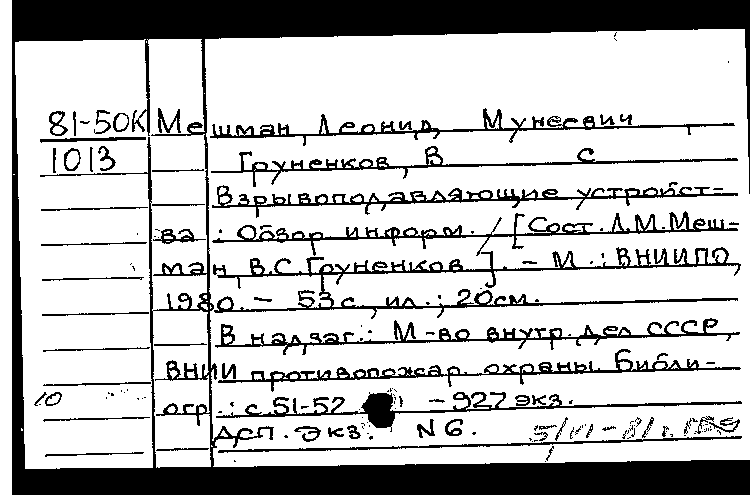 81-50К Мешман, Леонид Мунеевич,
1013 Груненков, В С
Взрывоподавляющие устройст-
ва : Обзор информ. / [Сост. Л.М.Меш-
ман, В.С.Груненков]. - М. : ВНИИПО,
1980. - 53 с., ил. ; 20см.
В надзаг.: М-во внутр. дел СССР,
ВНИИ противопожар. охраны. Библи-
10 огр.: с.51-52 - 927 экз.
ДСП. Экз. N 6. 5/VI-81г.